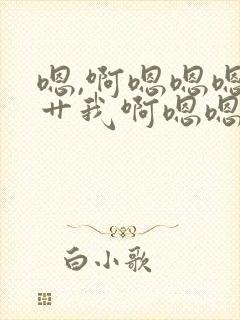 嗯,啊嗯嗯嗯
艹我啊嗯嗯
白小歌